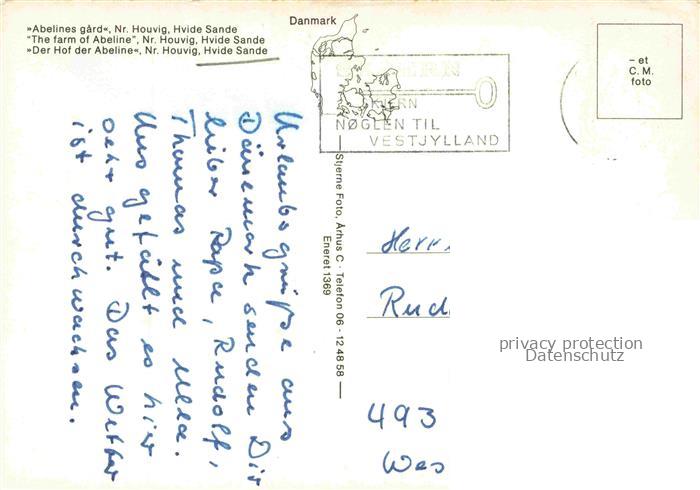 Danmark
»Abelines gård«, Nr. Houvig, Hvide Sande
"The farm of Abeline", Nr. Houvig, Hvide Sande
»Der Hof der Abeline«, Nr. Houvig, Hvide Sande
– et
C. M.
foto
NØGLEN TIL
VESTJYLLAND
Urlaubsgrüße aus
Dänemark senden Dir
lieber Papa, Rudolf,
Thomas und Ulla.
Uns gefällt es hier
sehr gut. Das Wetter
ist durchwachsen.
Stjerne Foto, Århus C · Telefon 06 - 12 48 58
Eneret 1369
Herr
Rud
493
Wes
privacy protection
Datenschutz